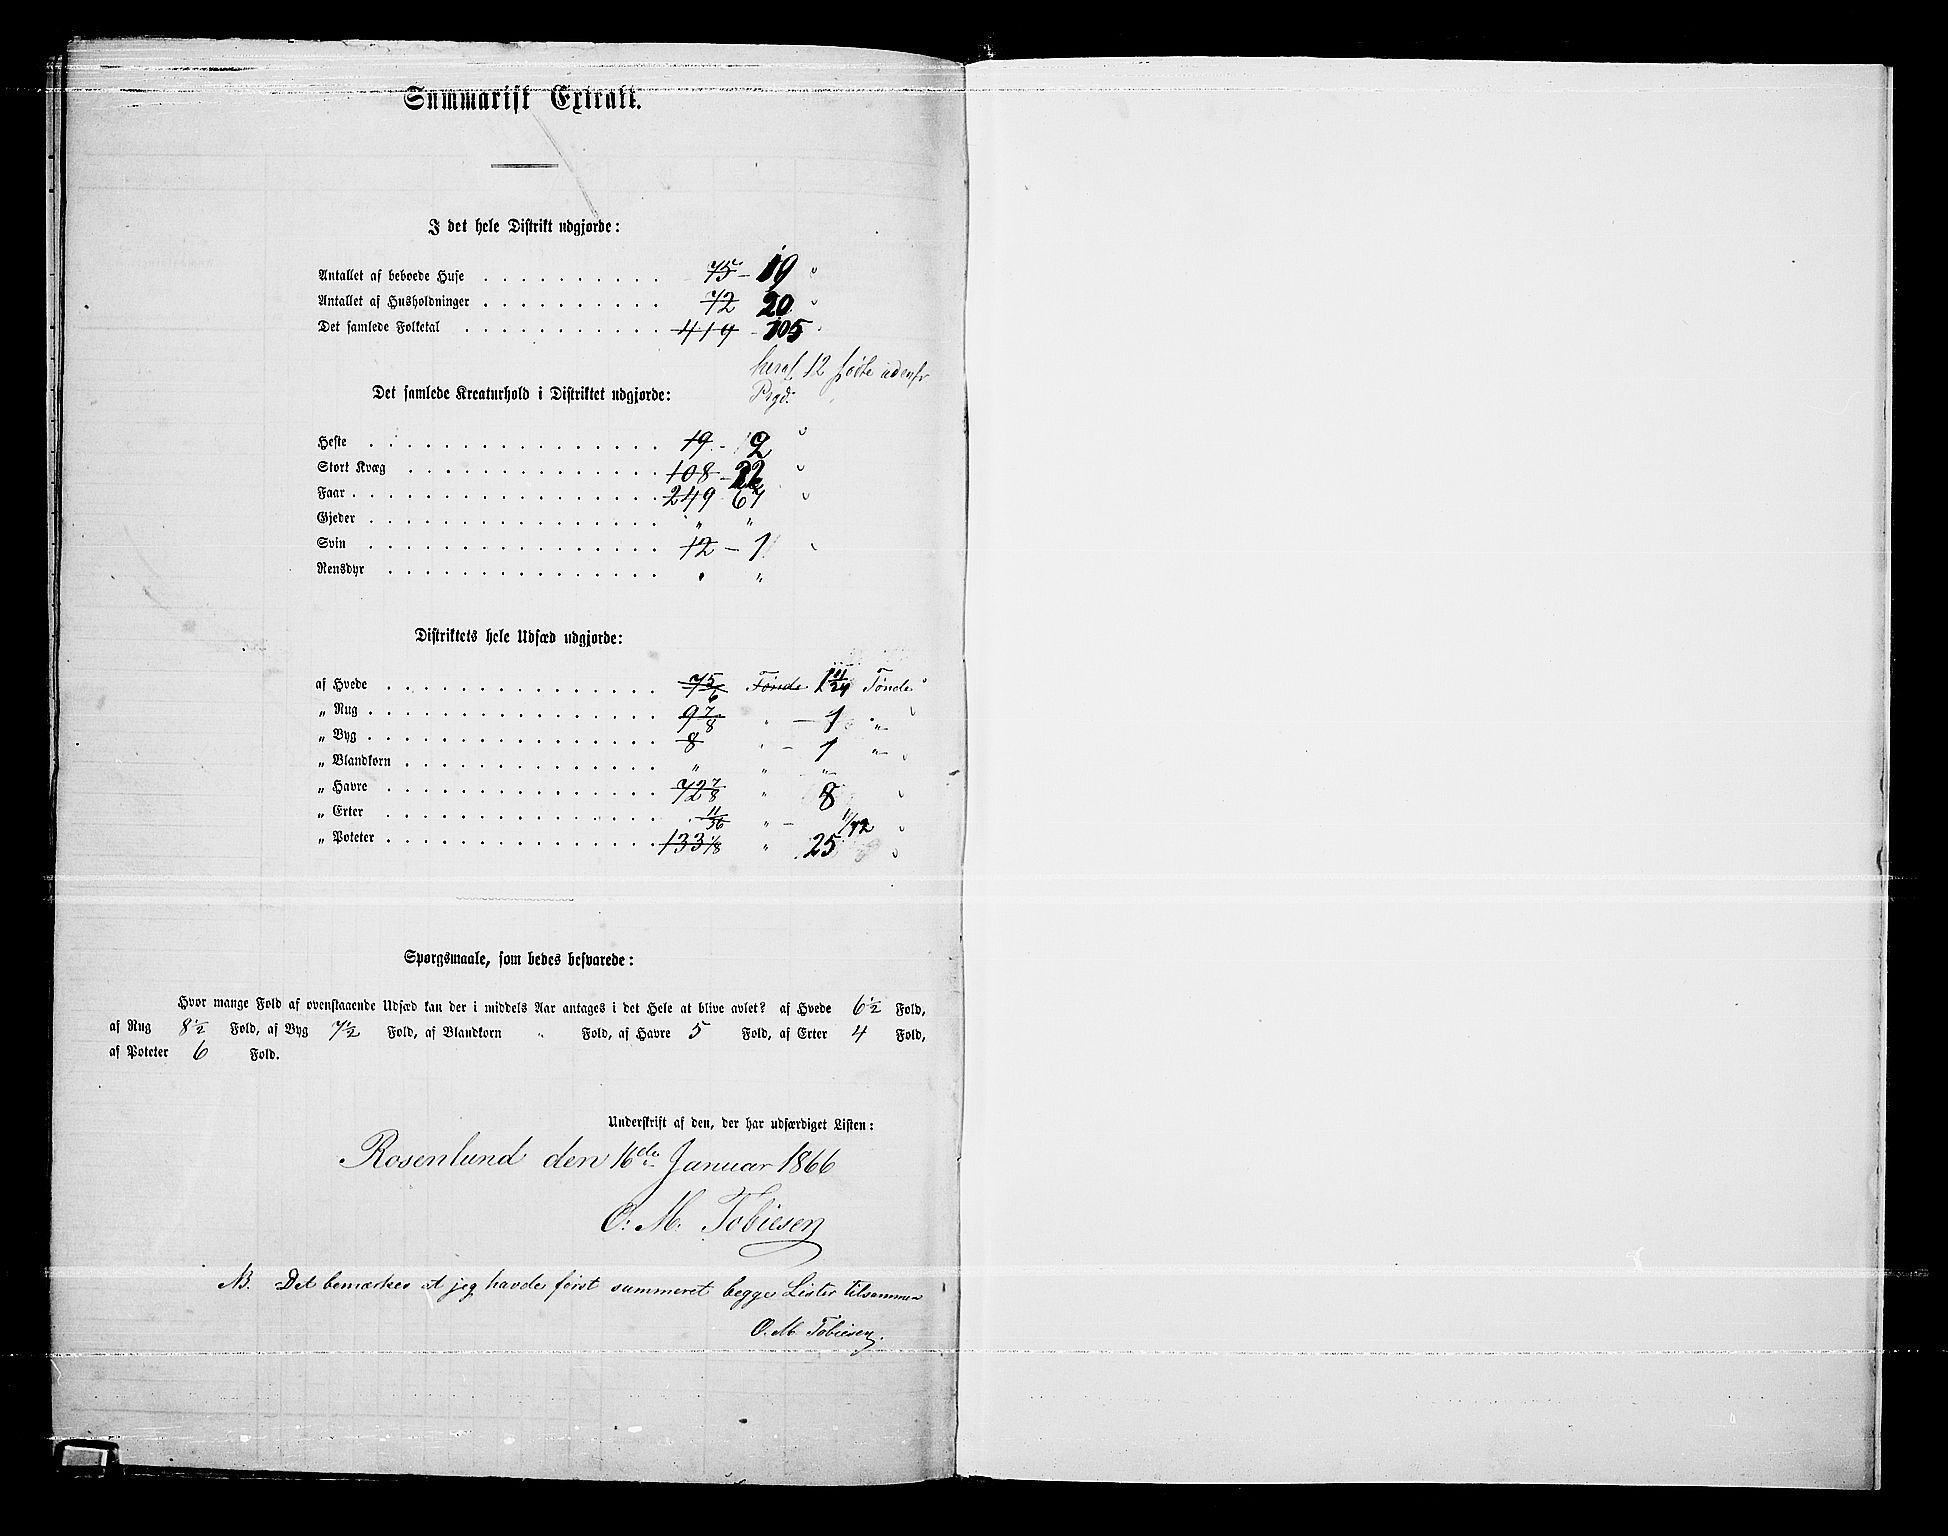 Summarisk Extrakt.
I det hele Distrikt udgjorde:
Antallet af beboede Huse 75 – 19
Antallet af Husholdninger 72 20
Det samlede Folketal 419 – 105
heraf 12 fødte udenfr
Prgd.
Det samlede Kreaturhold i Distriktet udgjorde:
Heste 19 – 2
Stort Kvæg 108 – 22
Faar 249 67
Gjeder „ „
Svin 12 – 1
Rensdyr „
Distriktets hele Udsæd udgjorde:
af Hvede 7 5/6 Tønde 1 11/24 Tønde
„ Rug 9 7/8 „ – 1 „
„ Byg 8 „ – 1 „
„ Blandkorn „ „ „
„ Havre 72 7/8 „ 8
„ Erter 11/36 „ – 11/72
„ Poteter 133 1/8 „ 25
Spørgsmaale, som bedes besvarede:
Hvor mange Fold af ovenstaaende Udsæd kan der i middels Aar antages i det Hele at blive avlet? af Hvede 6½ Fold,
af Rug 8½ Fold, af Byg 7½ Fold, af Blandkorn „ Fold, af Havre 5 Fold, af Erter 4 Fold,
af Poteter 6 Fold.
Underskrift af den, der har udfærdiget Listen:
Rosenlund den 16de Januar 1866
O. M. Tobiesen
NB. Det bemærkes at jeg havde først summeret begge Lister tilsammen
O. M. Tobiesen.